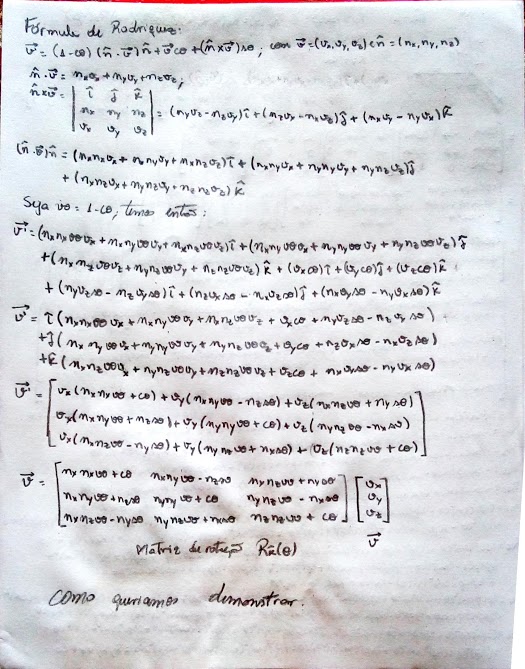 Fórmula de Rodrigues:
v⃗' = (1-cθ)(n̂·v⃗)n̂ + v⃗cθ + (n̂×v⃗)sθ; com v⃗=(vx,vy,vz) e n̂=(nx,ny,nz)
n̂·v⃗ = nxvx + nyvy + nzvz;
n̂×v⃗ = | î ĵ k̂ |
| nx ny nz | = (nyvz - nzvy)î + (nzvx - nxvz)ĵ + (nxvy - nyvx)k̂
| vx vy vz |
(n̂·v⃗)n̂ = (nxnxvx + nxnyvy + nxnzvz)î + (nxnyvx + nynyvy + nynzvz)ĵ
+ (nxnzvx + nynzvy + nznzvz)k̂
Seja vθ = 1-cθ, temos então:
v⃗' = (nxnxvθvx + nxnyvθvy + nxnzvθvz)î + (nxnyvθvx + nynyvθvy + nynzvθvz)ĵ
+ (nxnzvθvx + nynzvθvy + nznzvθvz)k̂ + (vxcθ)î + (vycθ)ĵ + (vzcθ)k̂
+ (nyvzsθ - nzvysθ)î + (nzvxsθ - nxvzsθ)ĵ + (nxvysθ - nyvxsθ)k̂
v⃗' = î(nxnxvθvx + nxnyvθvy + nxnzvθvz + vxcθ + nyvzsθ - nzvysθ)
+ĵ(nxnyvθvx + nynyvθvy + nynzvθvz + vycθ + nzvxsθ - nxvzsθ)
+k̂(nxnzvθvx + nynzvθvy + nznzvθvz + vzcθ + nxvysθ - nyvxsθ)
v⃗' = [ vx(nxnxvθ + cθ) + vy(nxnyvθ - nzsθ) + vz(nxnzvθ + nysθ) ]
[ vx(nxnyvθ + nzsθ) + vy(nynyvθ + cθ) + vz(nynzvθ - nxsθ) ]
[ vx(nxnzvθ - nysθ) + vy(nynzvθ + nxsθ) + vz(nznzvθ + cθ) ]
v⃗' = [ nxnxvθ + cθ nxnyvθ - nzsθ nxnzvθ + nysθ ] [ vx ]
[ nxnyvθ + nzsθ nynyvθ + cθ nynzvθ - nxsθ ] [ vy ]
[ nxnzvθ - nysθ nynzvθ + nxsθ nznzvθ + cθ ] [ vz ]
Matriz de rotação Rn̂(θ) v⃗
Como queríamos demonstrar.